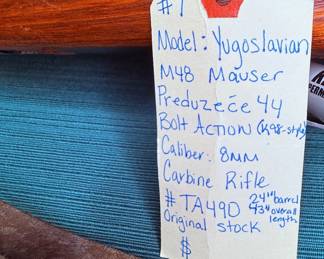 # 1
Model: Yugoslavian
M48 Mauser
Preduzeće 44
Bolt Action (K98-style)
Caliber: 8mm
Carbine Rifle
# TA490 24" barrel
43" overall length
Original stock
$